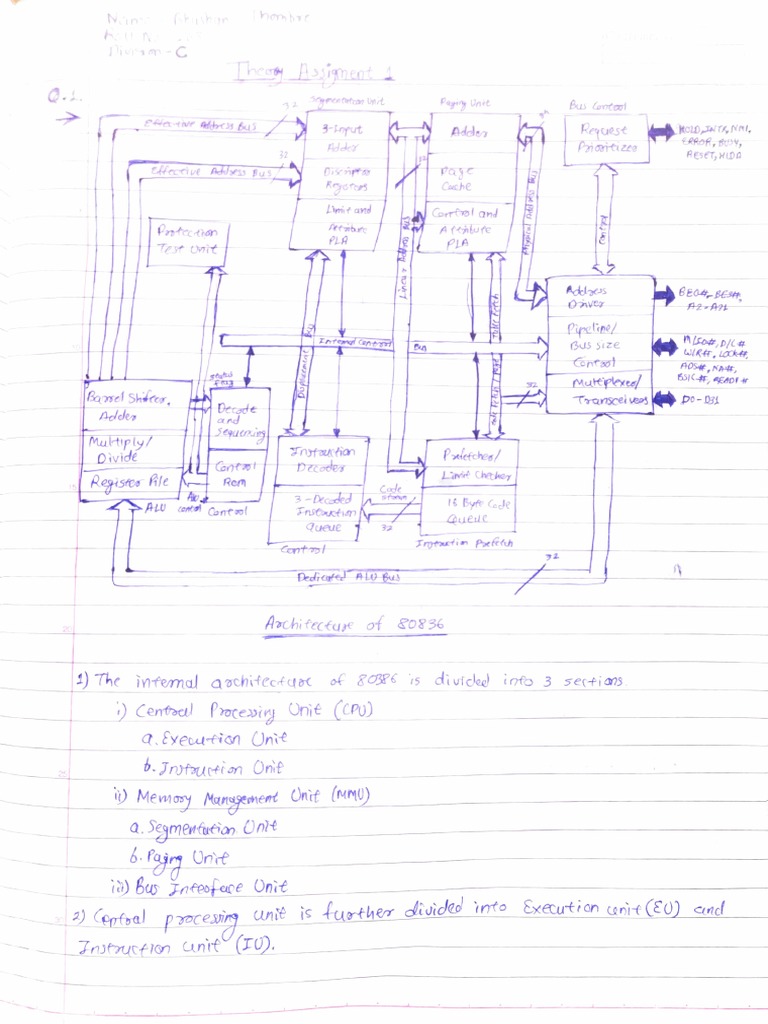 Name
Division - C
Theory Assigment 1
Q.1.
Segmentation Unit
Paging Unit
Bus Control
Effective Address Bus
32
3-Input
Adder
Adder
Request
Prioritizer
HOLD, INTR, NMI,
ERROR, BUSY,
RESET, HLDA
Effective Address Bus
32
Discriptor
Registers
32
Page
Cache
Physical Address Bus
Limit and
Attribute
PLA
Control and
Attribute
PLA
Control
Protection
Test Unit
Linear Address Bus
Address
Driver
BE0#-BE3#,
A2-A31
Displacement Bus
Internal Control
Bus
Pipeline/
Bus size
Control
M/IO#, D/C#
W/R#, LOCK#,
ADS#, NA#,
BS16#, READY#
Status
Flag
32
Multiplexer/
Transceivers
D0-D31
Barrel Shifter,
Adder
Decode
and
Sequencing
Multiply/
Divide
Instruction
Decoder
Prefetcher/
Limit Checker
Register File
Control
Rom
3-Decoded
Instruction
Queue
Code
Stream
32
16 Byte Code
Queue
ALU
ALU
Control
Control
Control
Instruction Prefetch
Dedicated ALU Bus
32
Architecture of 80836
1) The internal architecture of 80386 is divided into 3 sections.
i) Central Processing Unit (CPU)
a. Execution Unit
b. Instruction Unit
ii) Memory Management Unit (MMU)
a. Segmentation Unit
b. Paging Unit
iii) Bus Interface Unit
2) Central processing unit is further divided into Execution unit (EU) and
Instruction unit (IU).